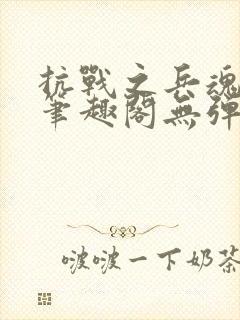 抗戰之兵魂
筆趣閣無彈
啵啵一下奶茶